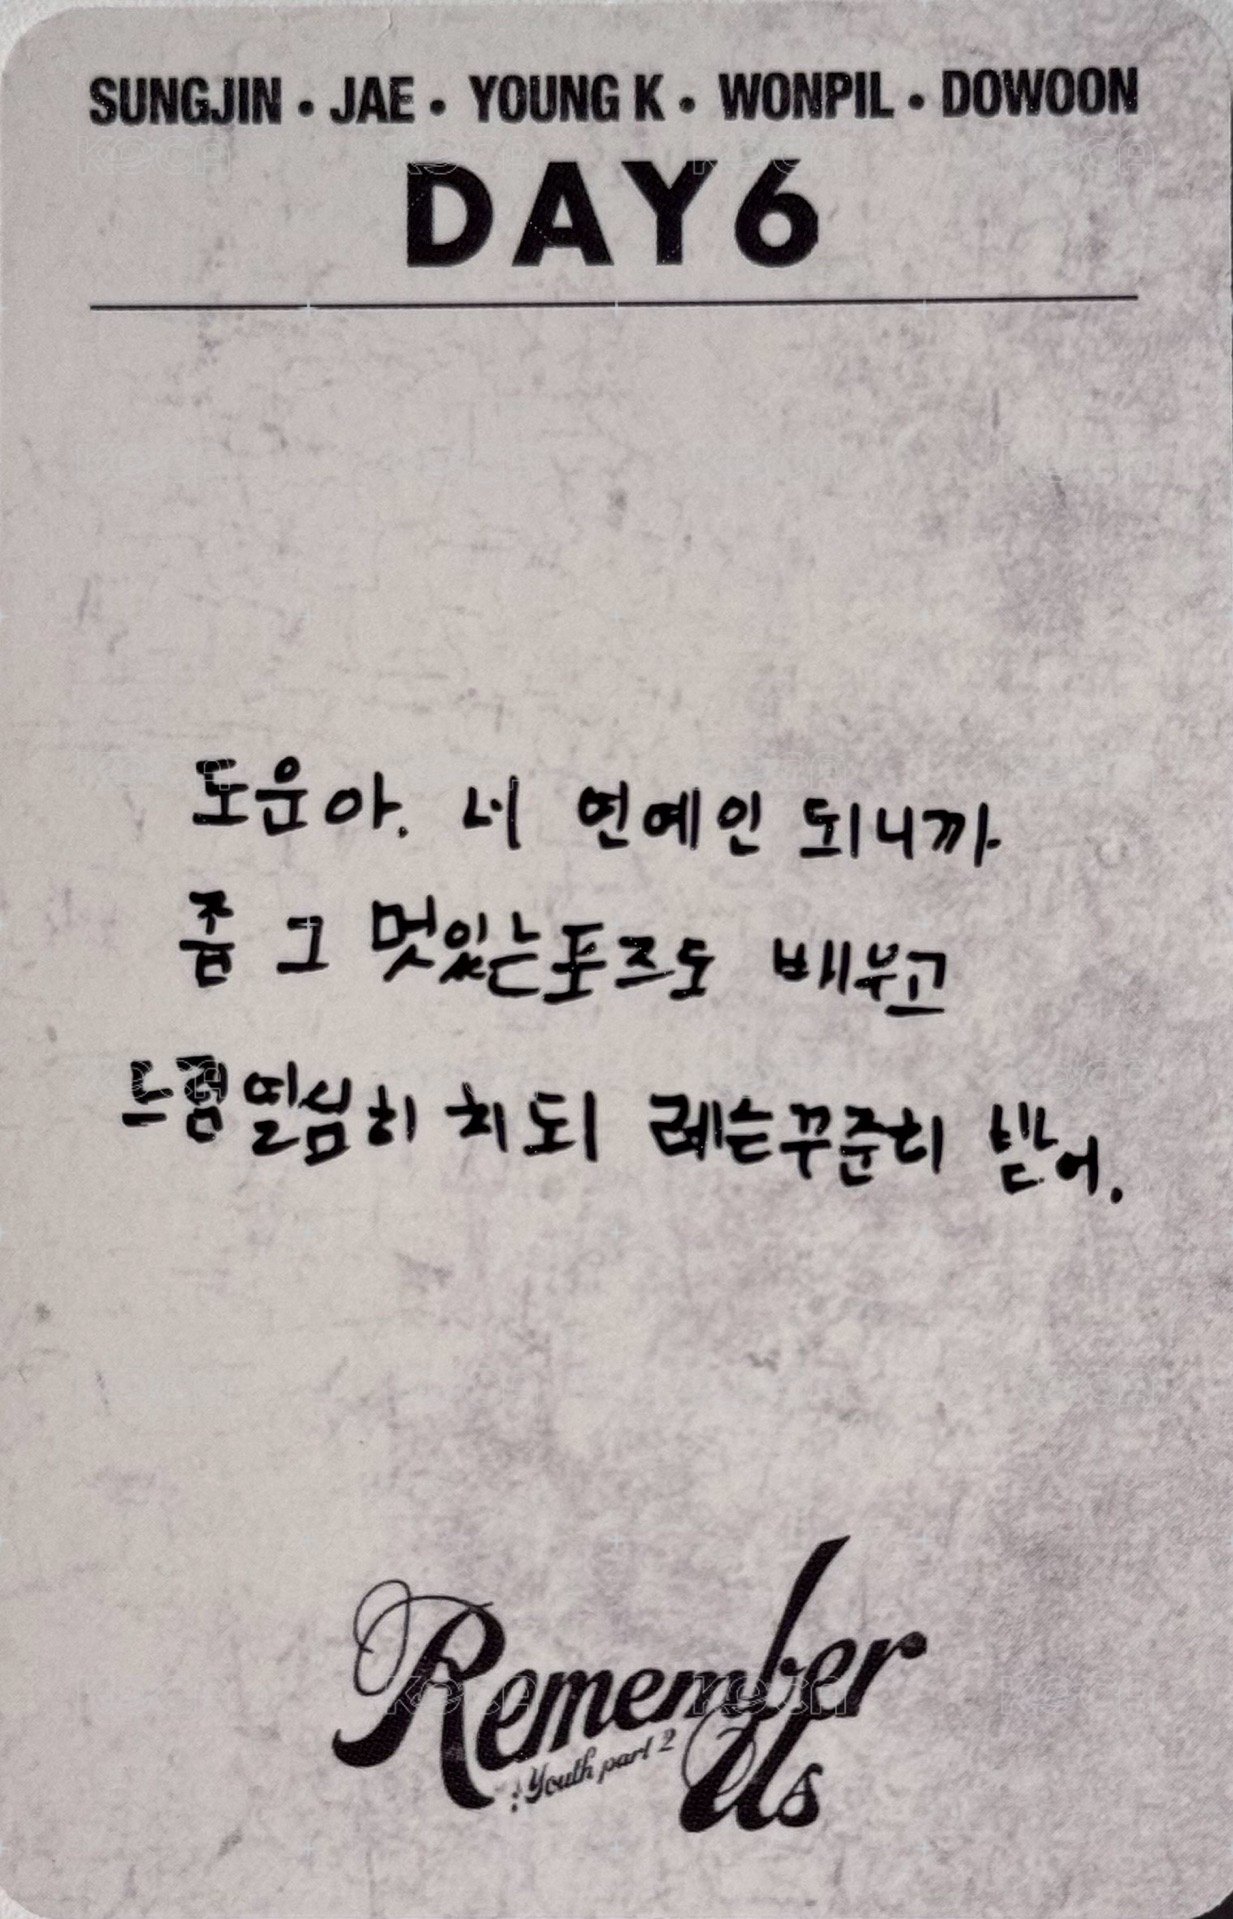 SUNGJIN • JAE • YOUNG K • WONPIL • DOWOON
DAY6
도운아. 너 연예인 되니까
좀 그 멋있는포즈도 배우고
드럼열심히 치되 레슨꾸준히 받어.
Remember
Us
: Youth part 2